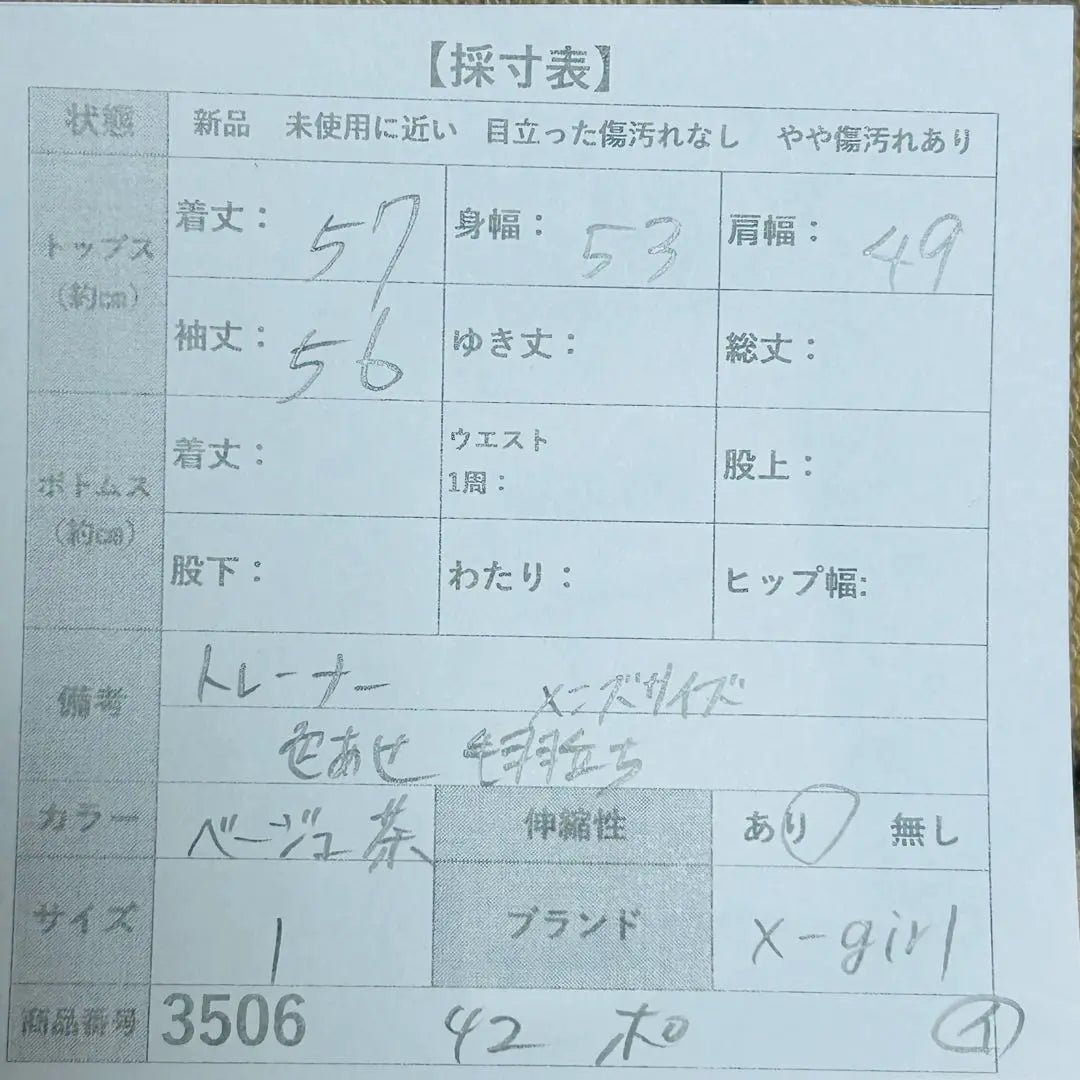 【採寸表】
状態 新品 未使用に近い 目立った傷汚れなし やや傷汚れあり
トップス (約㎝) 着丈: 57 身幅: 53 肩幅: 49
袖丈: 56 ゆき丈: 総丈:
ボトムス (約㎝) 着丈: ウエスト 1周: 股上:
股下: わたり: ヒップ幅:
備考 トレーナー メンズサイズ
色あせ 毛羽立ち
カラー ベージュ 茶 伸縮性 あり 無し
サイズ 1 ブランド x-girl
商品番号 3506 42 ホロ イ